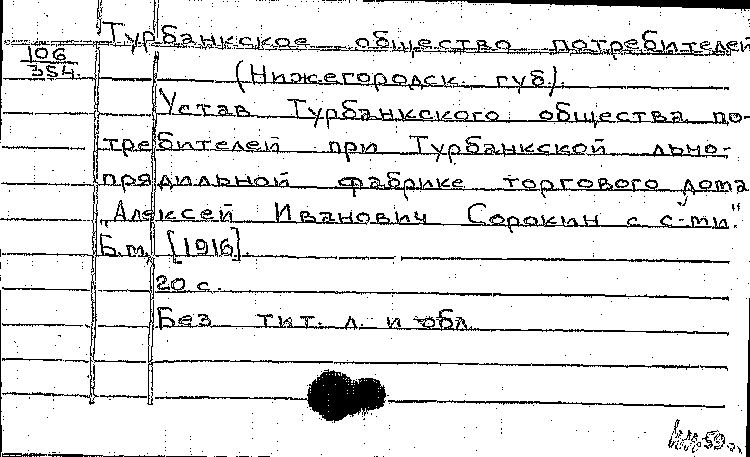 Турбанкское общество потребителей
106
354.
(Нижегородск. губ).
Устав Турбанкского общества по-
требителей при Турбанкской льно-
прядильной фабрике торгового дома
"Алексей Иванович Сорокин с с-ми."
Б.м. [1916].
20 с.
Без тит. л. и обл.
59